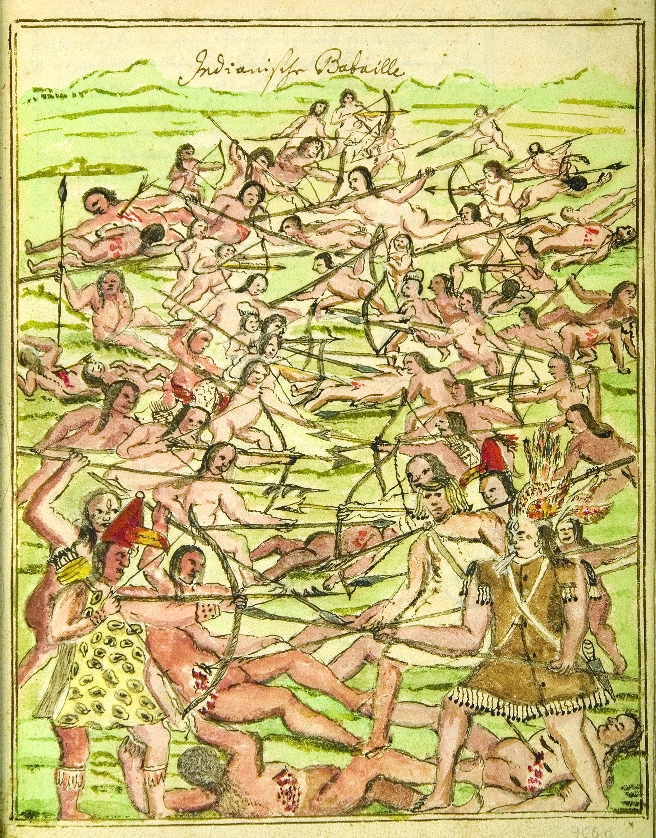 Indianische Bataille